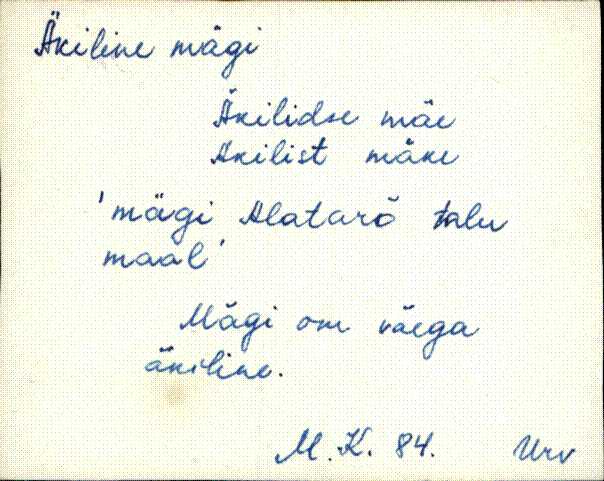 Äkiline mägi
Äkilidse mäe
Äkilist mäke
'mägi Alatarõ talu
maal'
Mägi om väega
äkiline.
M. K. 84. Urv